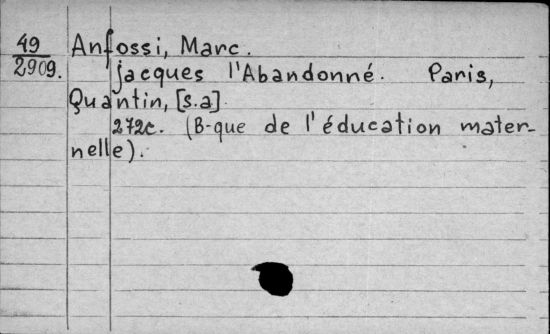 49 Anfossi, Marc.
2909. Jacques l'Abandonné. Paris,
Quantin, [s.a]
272c. (B-que de l'éducation mater-
nelle).